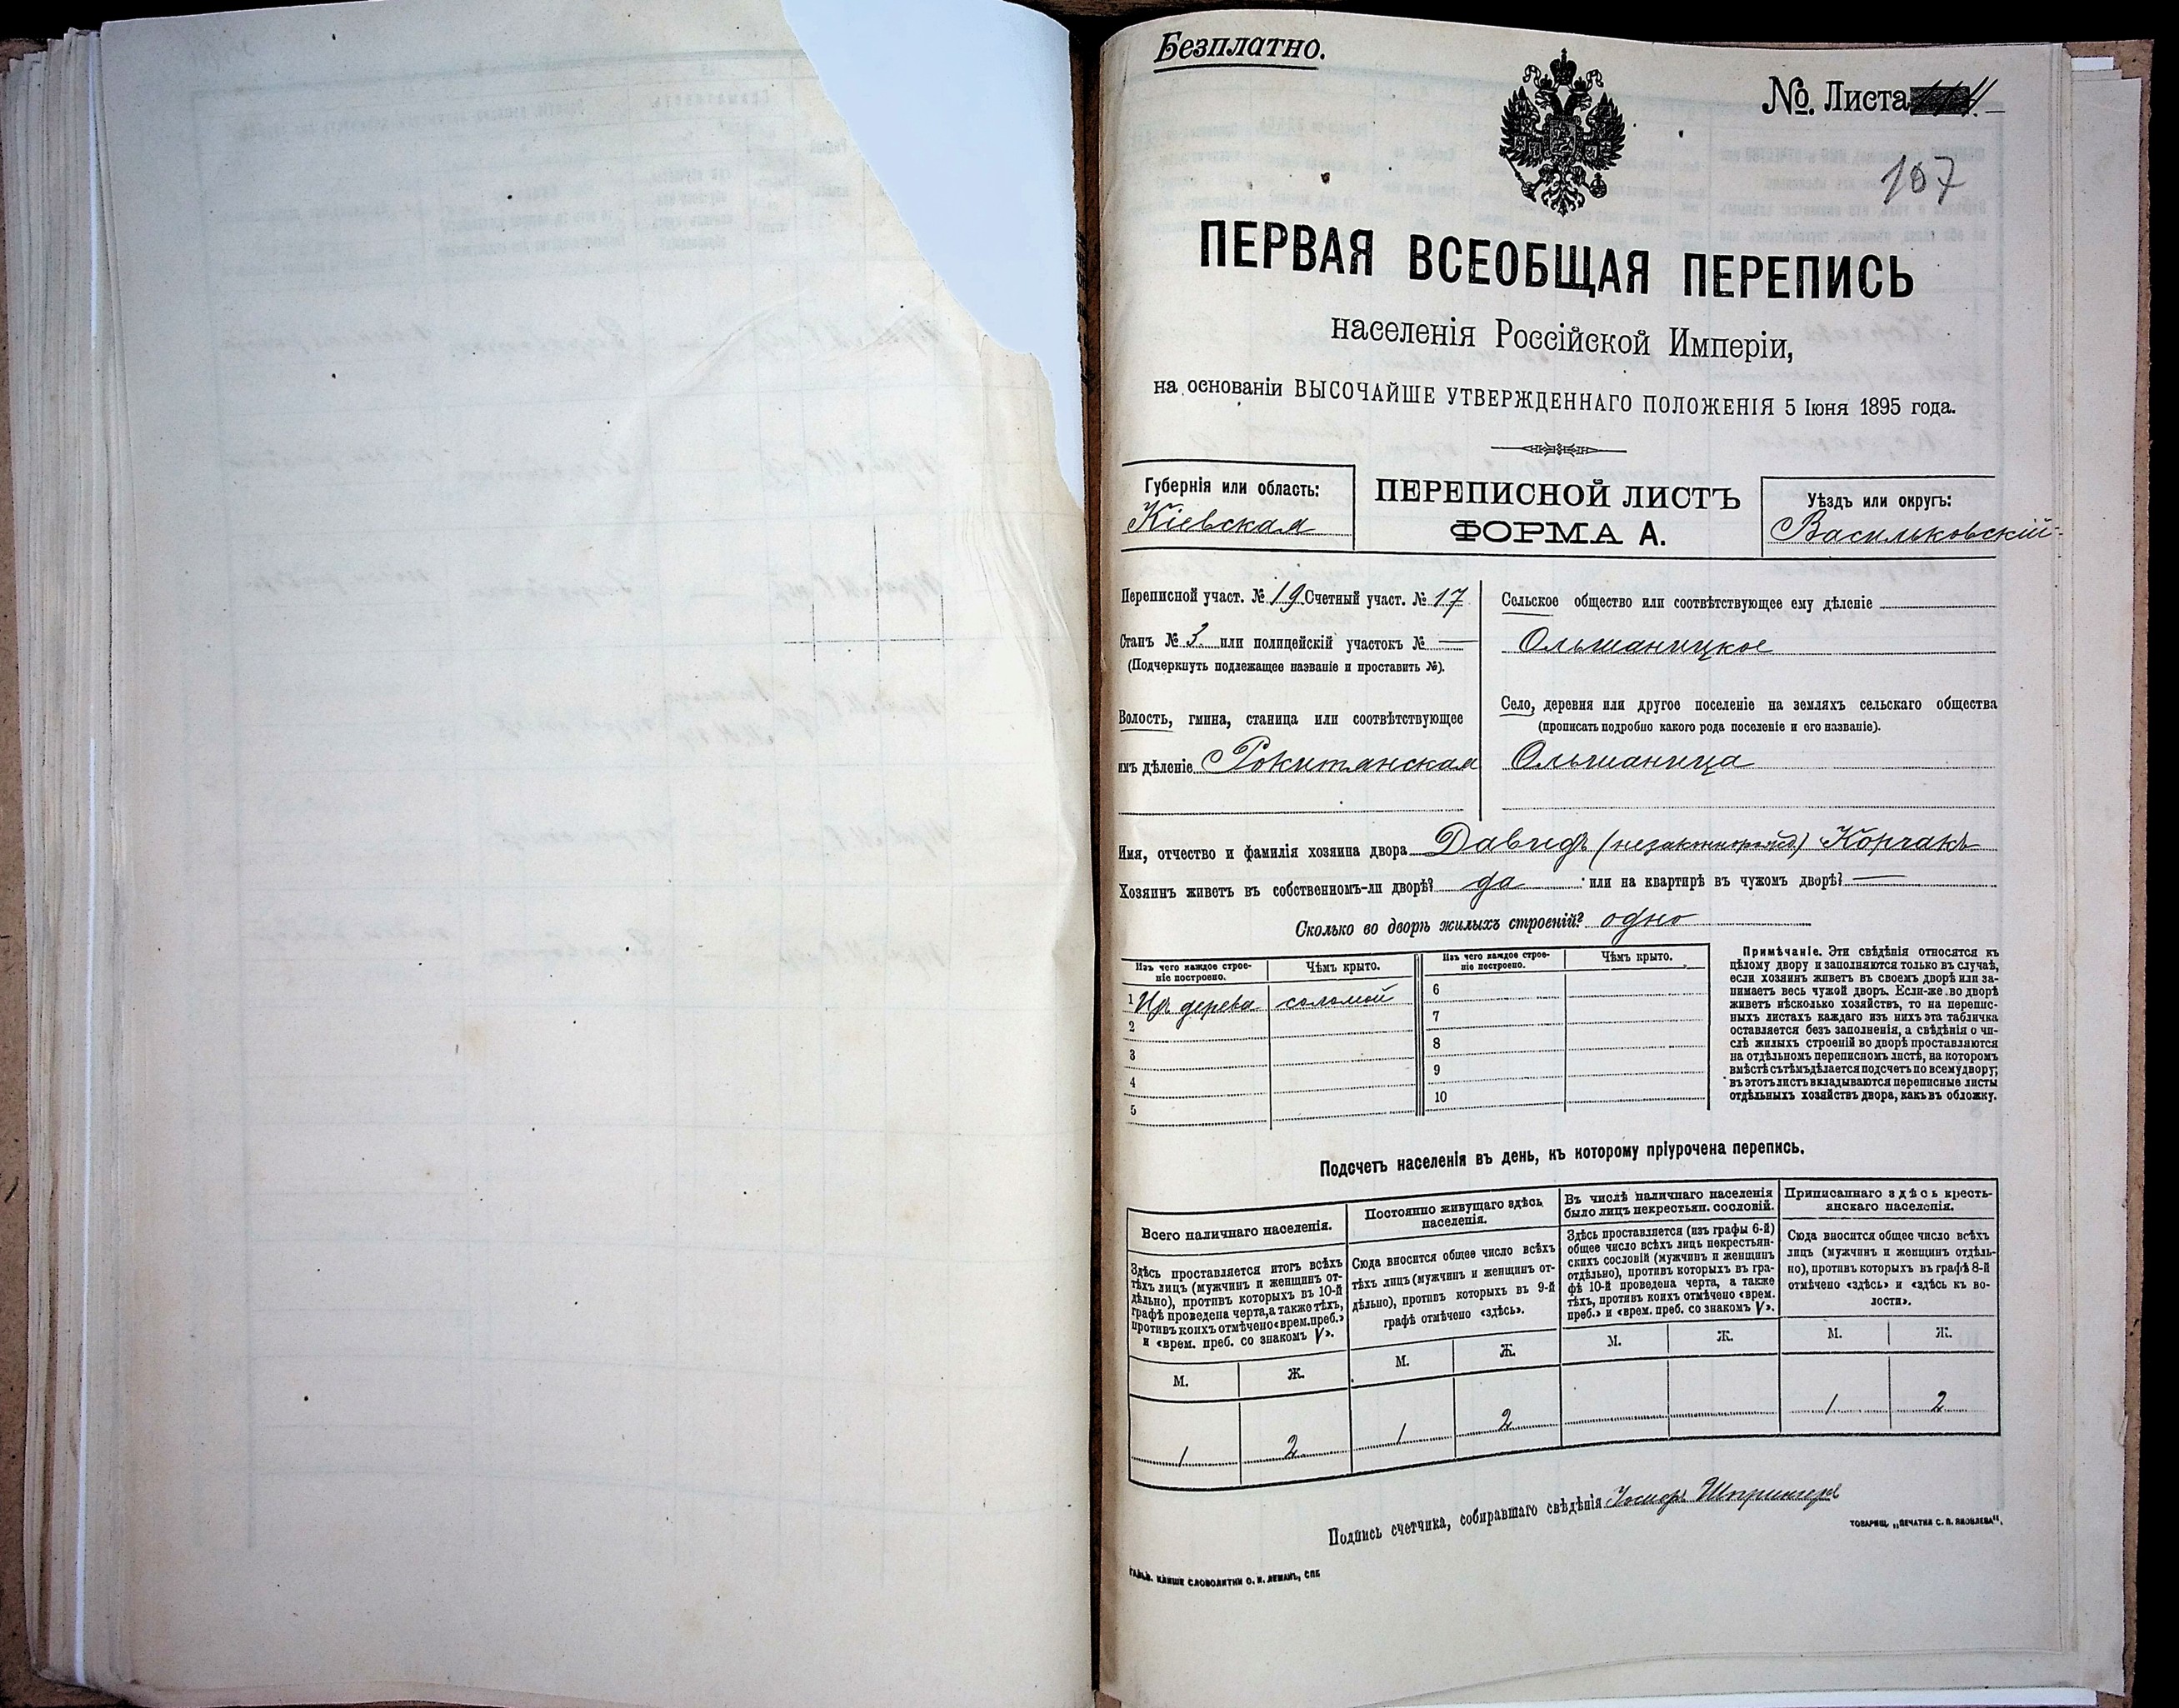 Безплатно.
№ Листа
107
ПЕРВАЯ ВСЕОБЩАЯ ПЕРЕПИСЬ
населенія Россійской Имперіи,
на основаніи ВЫСОЧАЙШЕ УТВЕРЖДЕННАГО ПОЛОЖЕНІЯ 5 Іюня 1895 года.
Губернія или область:
Кіевская
ПЕРЕПИСНОЙ ЛИСТЪ
ФОРМА А.
Уѣздъ или округъ:
Васильковскій
Переписной участ. № 19 Счетный участ. № 17
Станъ № 3 или полицейскій участокъ № —
(Подчеркнуть подлежащее названіе и проставить №).
Волость, гмина, станица или соотвѣтствующее
имъ дѣленіе Рокитянская
Сельское общество или соотвѣтствующее ему дѣленіе
Ольшаницкое
Село, деревня или другое поселеніе на земляхъ сельскаго общества
(прописать подробно какого рода поселеніе и его названіе).
Ольшаница
Имя, отчество и фамилія хозяина двора Давидъ (незаконнорожд) Корчакъ
Хозяинъ живетъ въ собственномъ-ли дворѣ? да или на квартирѣ въ чужомъ дворѣ? —
Сколько во дворѣ жилыхъ строеній? одно
Изъ чего каждое строе-
ніе построено.
Чѣмъ крыто.
Изъ чего каждое строе-
ніе построено.
Чѣмъ крыто.
1 Изъ дерева соломой
2
3
4
5
6
7
8
9
10
Примѣчаніе. Эти свѣдѣнія относятся къ
цѣлому двору и заполняются только въ случаѣ,
если хозяинъ живетъ въ своемъ дворѣ или за-
нимаетъ весь чужой дворъ. Если-же во дворѣ
живетъ нѣсколько хозяйствъ, то на перепис-
ныхъ листахъ каждаго изъ нихъ эта табличка
оставляется безъ заполненія, а свѣдѣнія о чи-
слѣ жилыхъ строеній во дворѣ проставляются
на отдѣльномъ переписномъ листѣ, на которомъ
вмѣстѣ съ тѣмъ дѣлается подсчетъ по всему двору;
въ этотъ листъ вкладываются переписные листы
отдѣльныхъ хозяйствъ двора, какъ въ обложку.
Подсчетъ населенія въ день, къ которому пріурочена перепись.
Всего наличнаго населенія.
Здѣсь проставляется итогъ всѣхъ
тѣхъ лицъ (мужчинъ и женщинъ от-
дѣльно), противъ которыхъ въ 10-й
графѣ проведена черта, а также тѣхъ,
противъ коихъ отмѣчено «врем. преб.»
и «врем. преб. со знакомъ V».
М. Ж.
1 2
Постоянно живущаго здѣсь
населенія.
Сюда вносится общее число всѣхъ
тѣхъ лицъ (мужчинъ и женщинъ от-
дѣльно), противъ которыхъ въ 9-й
графѣ отмѣчено «здѣсь».
М. Ж.
1 2
Въ числѣ наличнаго населенія
было лицъ некрестьян. сословій.
Здѣсь проставляется (изъ графы 6-й)
общее число всѣхъ лицъ некрестьян-
скихъ сословій (мужчинъ и женщинъ
отдѣльно), противъ которыхъ въ гра-
фѣ 10-й проведена черта, а также
тѣхъ, противъ коихъ отмѣчено «врем.
преб.» и «врем. преб. со знакомъ V».
М. Ж.
Приписаннаго здѣсь кресть-
янскаго населенія.
Сюда вносится общее число всѣхъ
лицъ (мужчинъ и женщинъ отдѣль-
но), противъ которыхъ въ графѣ 8-й
отмѣчено «здѣсь» и «здѣсь къ во-
лости».
М. Ж.
1 2
Подпись счетчика, собиравшаго свѣдѣнія Іосифъ Шпрингеръ
ТОВАРИЩ. „ПЕЧАТНЯ С. П. ЯКОВЛЕВА“.
ГАЛЬВ. КЛИШЕ СЛОВОЛИТНИ О. И. ЛЕМАНЪ, СПБ